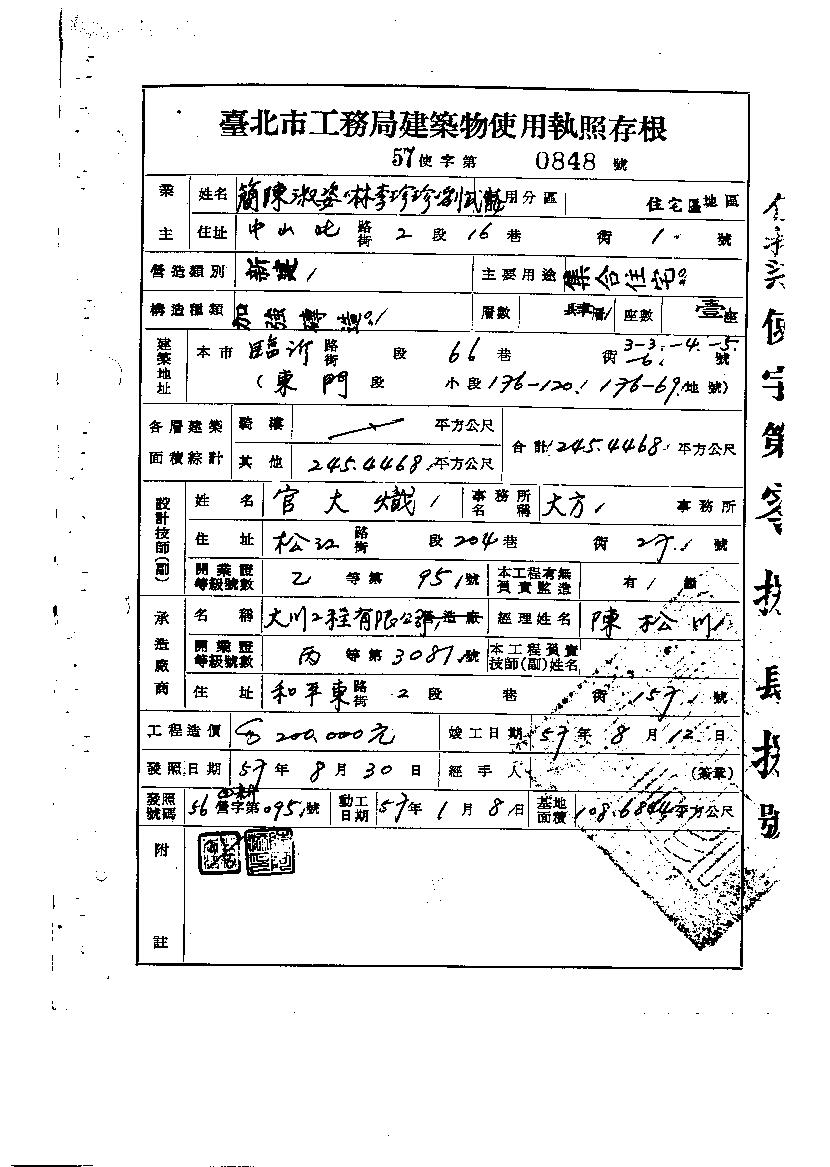 臺北市工務局建築物使用執照存根
57使字第 0848 號
業主 姓名 簡陳淑姿 林李珍珍 用分區 住宅區地區
住址 中山北 路街 2 段 16 巷 街 1 號
營造類別 新建 主要用途 集合住宅
構造種類 加強磚造 層數 層 座數 壹座
建築地址 本市 臨沂 路街 段 66 巷 街 3-3.-4.-5.-6. 號
(東門段 小段 176-120. 176-69. 地號)
各層建築面積綜計 騎樓 平方公尺 合計 245.4468 平方公尺
其他 245.4468 平方公尺
設計技師(副) 姓名 官大熾 事務所名稱 大方 事務所
住址 松江 路街 段 204 巷 街 27 號
開業證等級號數 乙 等第 951 號 本工程有無負責監造 有
承造廠商 名稱 大川工程有限公司 營造廠 經理姓名 陳松川
開業證等級號數 丙 等第 3081 號 本工程負責技師(副)姓名
住址 和平東 路街 2 段 巷 街 157 號
工程造價 200,000元 竣工日期 57年 8月 12日
發照日期 57年 8月 30日 經手人 (簽章)
發照號碼 56 營字第 0951 號 動工日期 57年 1月 8日 基地面積 108.6844 平方公尺
附註
使字第 號